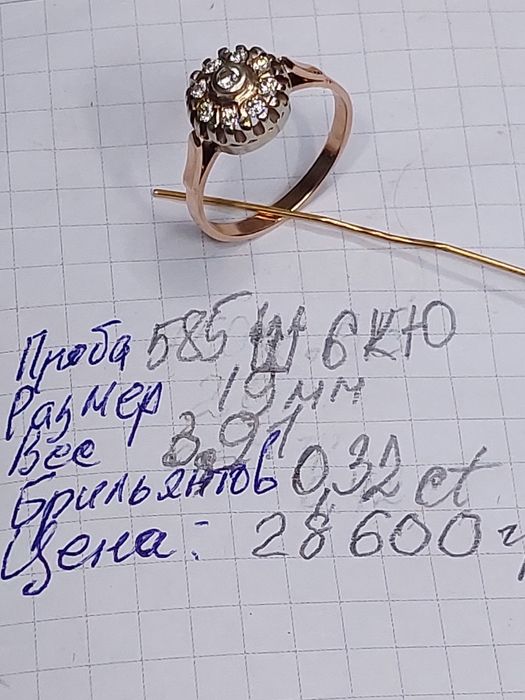 Проба 585 Ш 6 КЮ
Размер 19 мм
Вес 3,91
Брильянтов 0,32 ct
Цена: 28 600 г